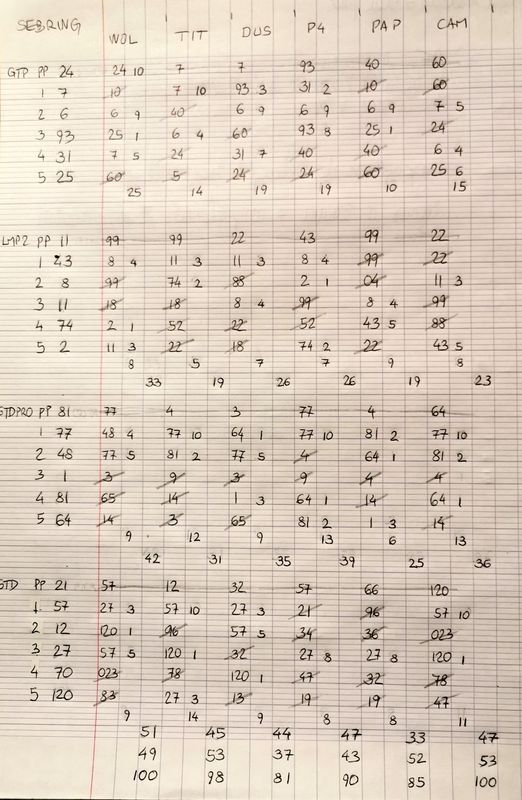 SEBRING WOL TIT DUS P4 PAP CAM
GTP PP 24 24 10 7 7 93 40 60
1 7 10 7 10 93 3 31 2 10 60
2 6 6 9 40 6 9 6 9 6 9 7 5
3 93 25 1 6 4 60 93 8 25 1 24
4 31 7 5 24 31 7 40 40 6 4
5 25 60 5 24 24 60 25 6
25 14 19 19 10 15
LMP2 PP 11 99 99 22 43 99 22
1 43 8 4 11 3 11 3 8 4 99 22
2 8 99 74 2 88 2 1 04 11 3
3 11 18 18 8 4 99 8 4 99
4 74 2 1 52 22 52 43 5 88
5 2 11 3 22 18 74 2 22 43 5
8 5 7 7 9 8
33 19 26 26 19 23
GTDPRO PP 81 77 4 3 77 4 64
1 77 48 4 77 10 64 1 77 10 81 2 77 10
2 48 77 5 81 2 77 5 4 64 1 81 2
3 1 3 9 3 9 4 4
4 81 65 14 1 3 64 1 14 64 1
5 64 14 3 65 81 2 1 3 14
9 12 9 13 6 13
42 31 35 39 25 36
GTD PP 21 57 12 32 57 66 120
1 57 27 3 57 10 27 3 21 96 57 10
2 12 120 1 96 57 5 34 36 023
3 27 57 5 120 1 32 27 8 27 8 120 1
4 70 023 78 120 1 47 32 78
5 120 83 27 3 13 19 19 47
9 14 9 8 8 11
51 45 44 47 33 47
49 53 37 43 52 53
100 98 81 90 85 100